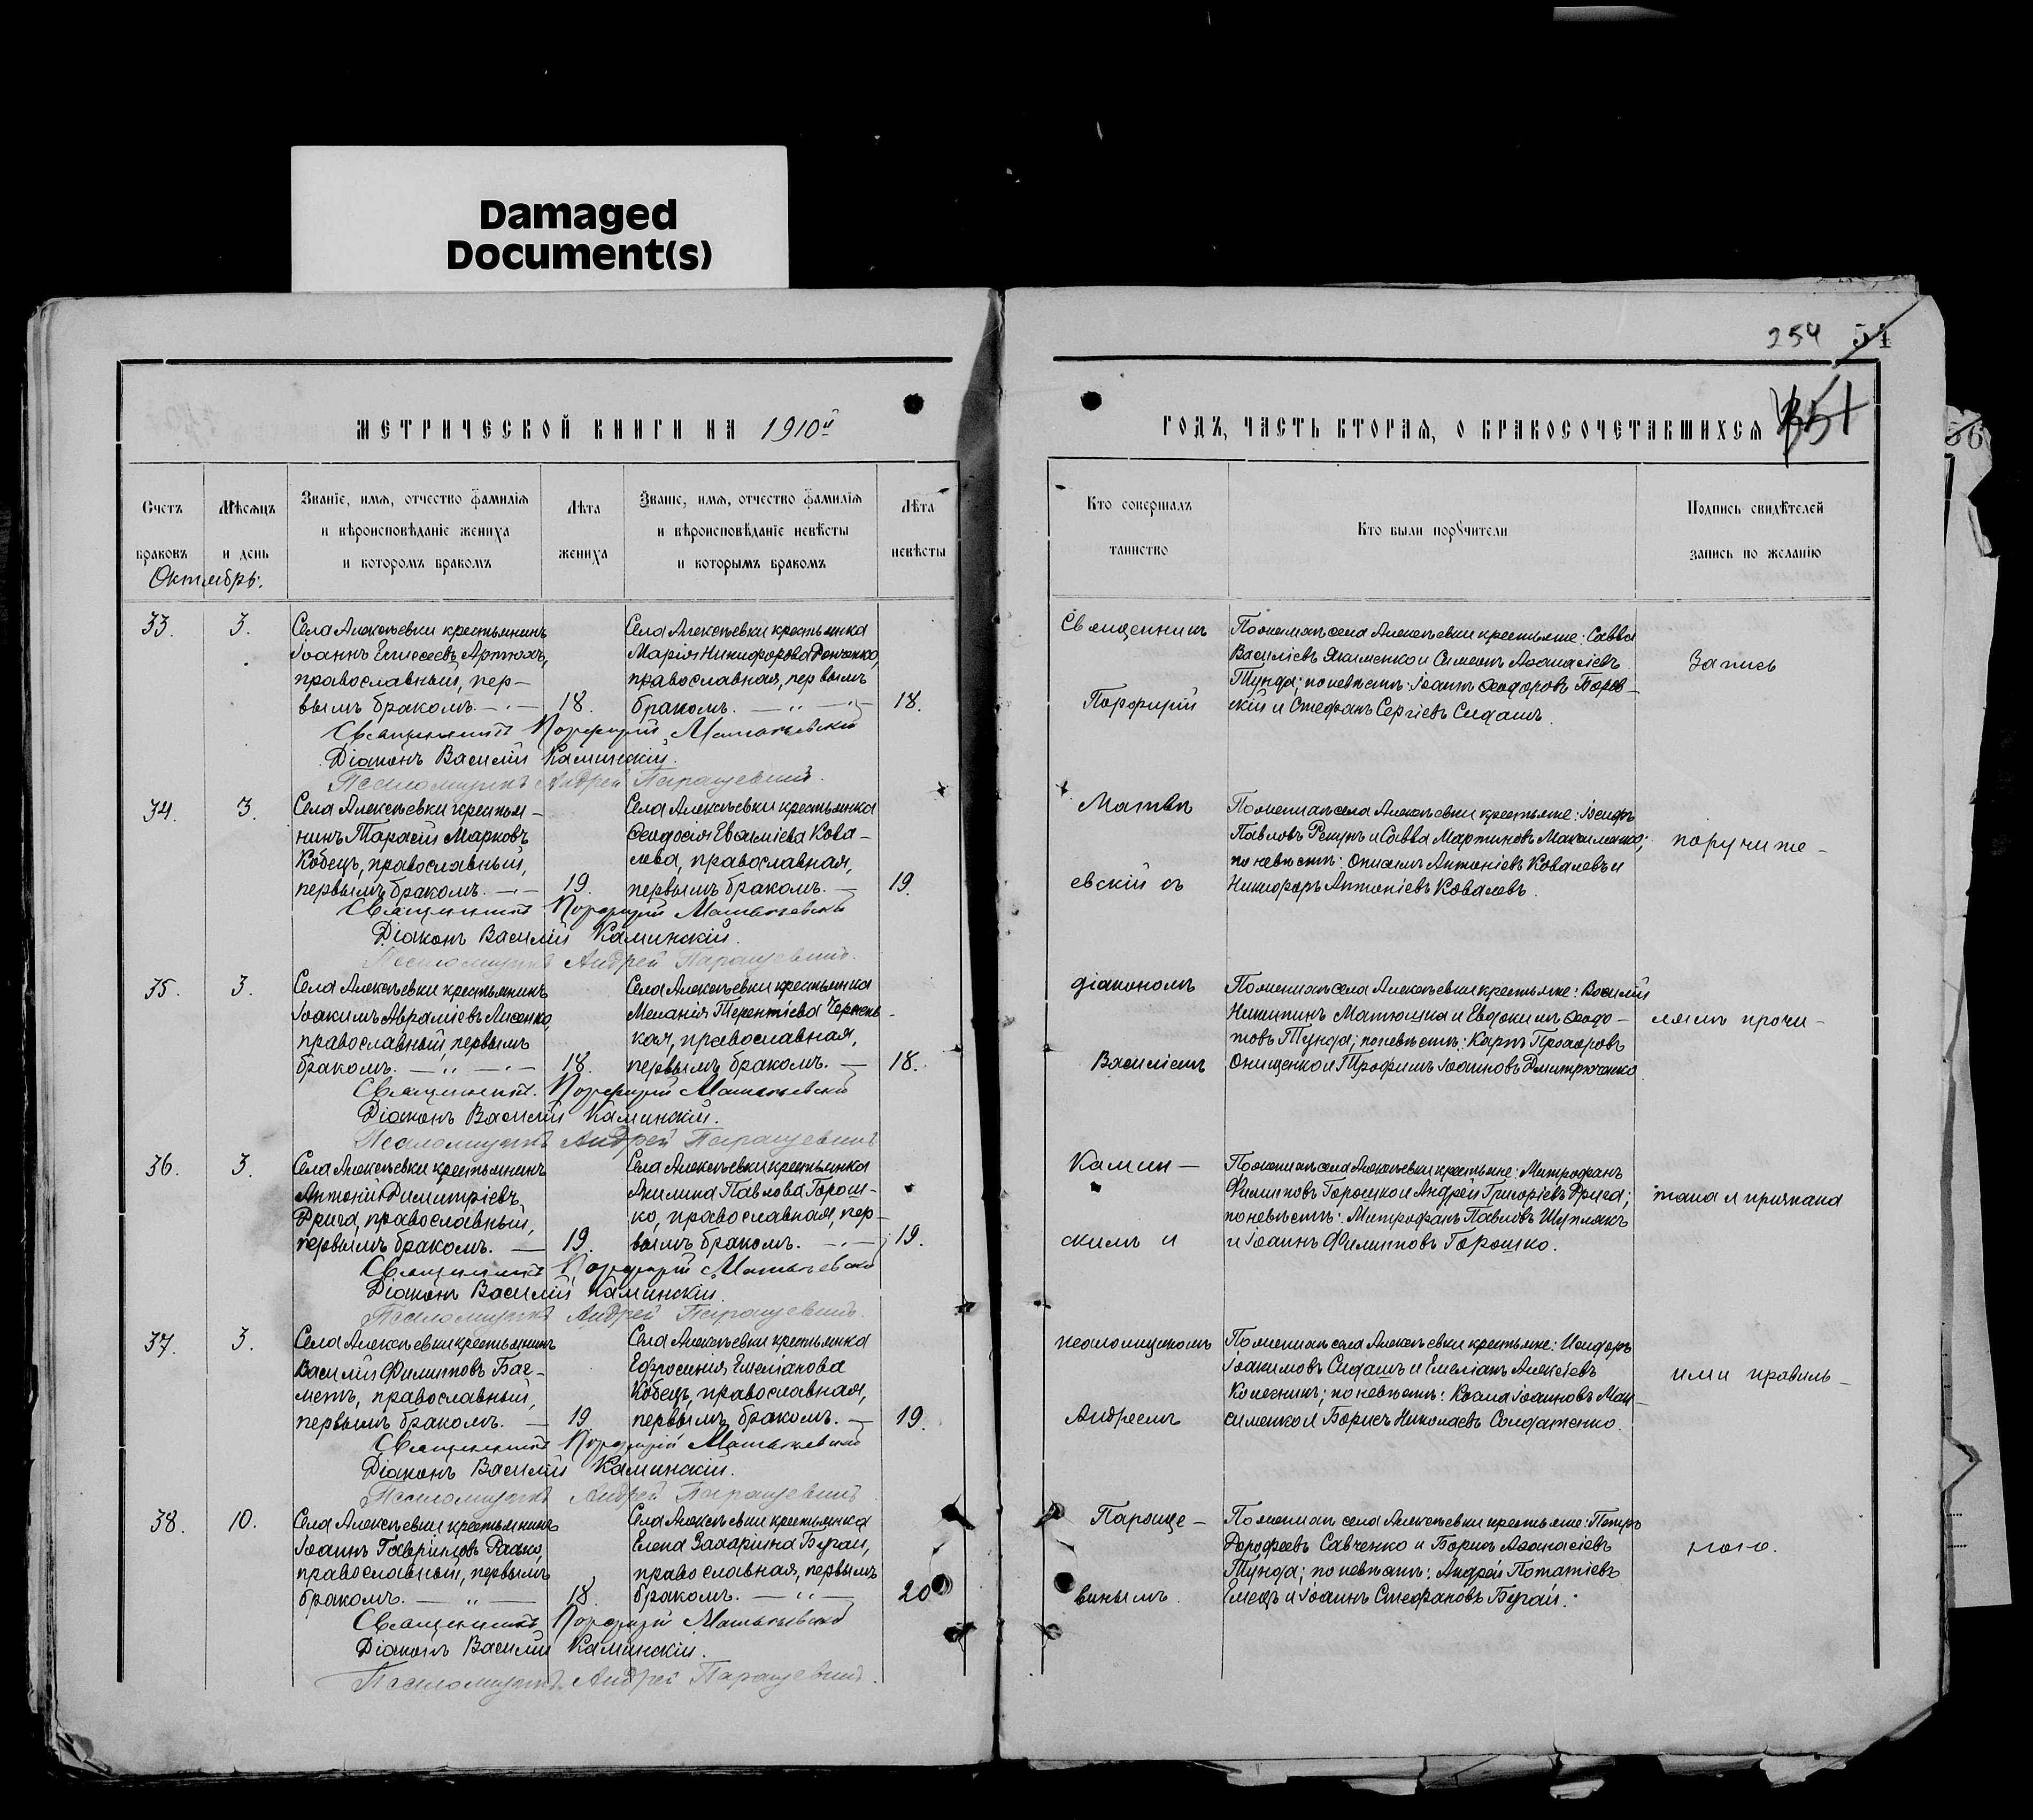 Damaged
Document(s)
254 54
МЕТРИЧЕСКОЙ КНИГИ НА 1910й
Счетъ браковъ
Мѣсяцъ и день
Званіе, имя, отчество фамилія
и вѣроисповѣданіе жениха
и которомъ бракомъ
Лѣта жениха
Званіе, имя, отчество фамилія
и вѣроисповѣданіе невѣсты
и которымъ бракомъ
Лѣта невѣсты
Октябрь.
33. 3.
Села Алексѣевки крестьянинъ
Іоаннъ Елисеевъ Артюхъ,
православный, пер-
вымъ бракомъ. 18.
Села Алексѣевки крестьянка
Марія Никифорова Донченко,
православная, первымъ
бракомъ. 18.
Священникъ Порфирій Матвѣевскій
Діаконъ Василій Каминскій.
Псаломщикъ Андрей Паращевинъ.
34. 3.
Села Алексѣевки крестья-
нинъ Тарасій Марковъ
Кобецъ, православный,
первымъ бракомъ. 19.
Села Алексѣевки крестьянка
Ѳеодосія Евѳиміева Кова-
лева, православная,
первымъ бракомъ. 19.
Священникъ Порфирій Матвѣевскій
Діаконъ Василій Каминскій.
Псаломщикъ Андрей Паращевинъ.
35. 3.
Села Алексѣевки крестьянинъ
Іоакимъ Авраміевъ Лисенко,
православный, первымъ
бракомъ. 18.
Села Алексѣевки крестьянка
Меланія Терентіева
кая, православная,
первымъ бракомъ. 18.
Священникъ Порфирій Матвѣевскій
Діаконъ Василій Каминскій.
Псаломщикъ Андрей Паращевинъ
36. 3.
Села Алексѣевки крестьянинъ
Антоній Димитріевъ
Дрига, православный,
первымъ бракомъ. 19.
Села Алексѣевки крестьянка
Акилина Павлова Горош-
ко, православная, пер-
вымъ бракомъ. 19.
Священникъ Порфирій Матвѣевскій
Діаконъ Василій Каминскій.
Псаломщикъ Андрей Паращевинъ.
37. 3.
Села Алексѣевки крестьянинъ
Василій Филипповъ Баг-
метъ, православный,
первымъ бракомъ. 19
Села Алексѣевки крестьянка
Ефросинія Емеліанова
Кобецъ, православная,
первымъ бракомъ. 19.
Священникъ Порфирій Матвѣевскій
Діаконъ Василій Каминскій.
Псаломщикъ Андрей Паращевинъ
38. 10.
Села Алексѣевки крестьянинъ
Іоаннъ Гавриловъ Радько,
православный, первымъ
бракомъ. 18.
Села Алексѣевки крестьянка
Елена Захаріина Бугай,
православная, первымъ
бракомъ. 20
Священникъ Порфирій Матвѣевскій
Діаконъ Василій Каминскій.
Псаломщикъ Андрей Паращевинъ.
ГОДЪ, ЧАСТЬ ВТОРАЯ, О БРАКОСОЧЕТАВШИХСЯ
56
Кто совершалъ
таинство
Кто были поручители
Подпись свидѣтелей
запись по желанію
Священникъ
Порфирій
Матвѣ
евскій съ
діакономъ
Василіемъ
Камин-
скимъ и
псаломщикомъ
Андреемъ
Параще-
винымъ.
По женихѣ села Алексѣевки крестьяне: Савва
Василіевъ Якименко и Симеонъ Аѳанасіевъ
Тунда; по невѣстѣ: Іоаннъ Ѳеодоровъ Борев-
скій и Стефанъ Сергіевъ Сидашъ.
По женихѣ села Алексѣевки крестьяне: Іосифъ
Павловъ Рекунъ и Савва Мартиновъ Максименко;
по невѣстѣ: Онисимъ Антоніевъ Ковалевъ и
Никифоръ Антоніевъ Ковалевъ.
По женихѣ села Алексѣевки крестьяне: Василій
Никитинъ Матюшка и Евдокимъ Ѳеодо-
товъ Тунда; по невѣстѣ: Карпъ Прохоровъ
Онищенко и Трофимъ Іоанновъ Дмитрюченко
По женихѣ села Алексѣевки крестьяне: Митрофанъ
Филипповъ Горошко и Андрей Григоріевъ Дрига;
по невѣстѣ: Митрофанъ Павловъ Шуплякъ
и Іоаннъ Филипповъ Горошко.
По женихѣ села Алексѣевки крестьяне: Исидоръ
Іоакимовъ Сидашъ и Емеліанъ Алексѣевъ
Колесникъ; по невѣстѣ: Косма Іоанновъ Мак-
сименко и Борисъ Николаевъ Солдатенко.
По женихѣ села Алексѣевки крестьяне: Петръ
Дорофеевъ Савченко и Борисъ Аѳанасіевъ
Тунда; по невѣстѣ: Андрей Потапіевъ
Емецъ и Іоаннъ Стефановъ Бугай.
Запись
поручите-
лямъ прочи-
тана и признана
ими правиль-
ною.